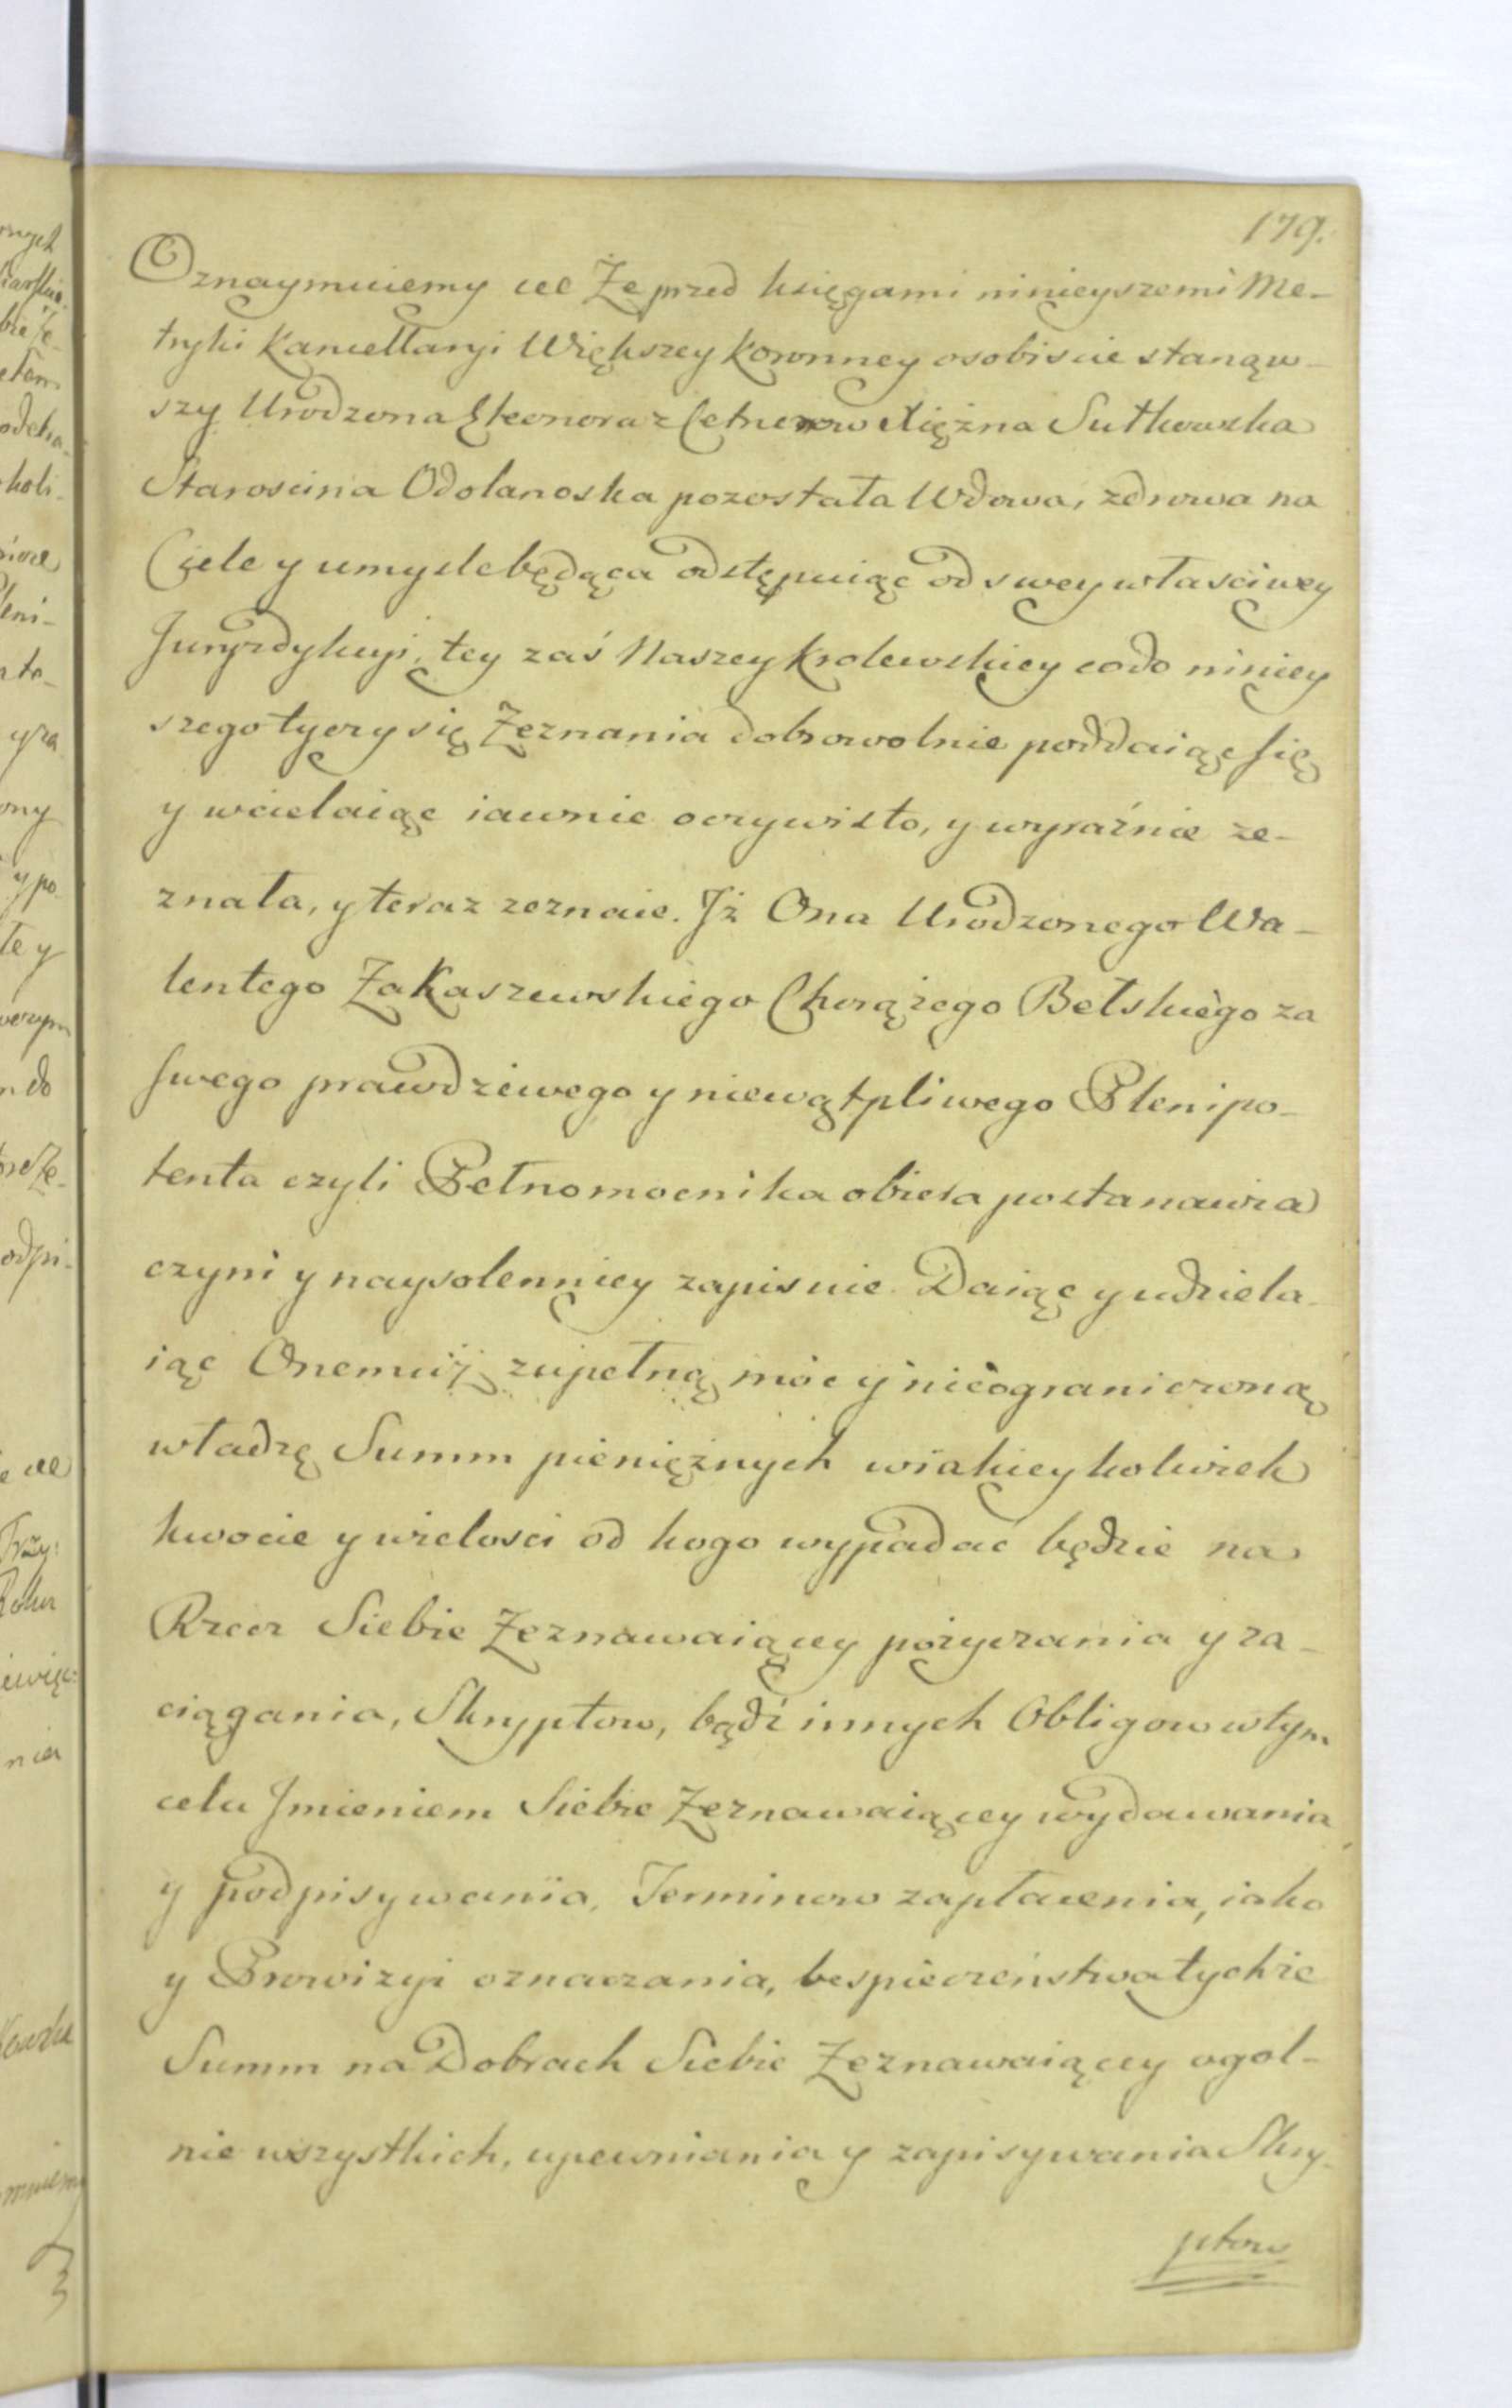 179.
Oznaymuiemy etc Że przed księgami ninieyszemi Me-
tryki Kancellaryi Większey Koronney osobiscie stanąw-
szy Urodzona Eleonora z Cetnerow Xiężna Sułkowska
Starościna Odolanoska pozostała Wdowa, zdrowa na
Ciele y umysle będąca odstępuiąc od swey własciwey
Juryzdykcyi, tey zaś Naszey Krolewskiey co do niniey
szego tyczy się Zeznania dobrowolnie poddaiąc się
y wcielaiąc iawnie oczywisto, y wyraźnie ze-
znała, y teraz zeznaie. Jż Ona Urodzonego Wa-
lentego Zakaszewskiego Chorążego Bełskiego za
swego prawdziwego y niewątpliwego Plenipo-
tenta czyli Pełnomocnika obiera postanawia
czyni y naysolenniey zapisuie. Daiąc y udziela-
iąc Onemuż zupełną moc y nieograniczoną
władzę Summ pieniężnych w iakieykolwiek
kwocie y wielosci od kogo wypadać będzie na
Rzecz Siebie Zeznawaiącey pożyczania y za-
ciągania, Skryptow, bądź innych Obligow w tym
celu Jmieniem Siebie Zeznawaiącey wydawania
y podpisywania, Terminow zapłacenia, iako
y Prowizyi oznaczania, bespieczeństwa tychże
Summ na Dobrach Siebie Zeznawaiącey ogol-
nie wszystkich, upewniania y zapisywania Skry-
ptow